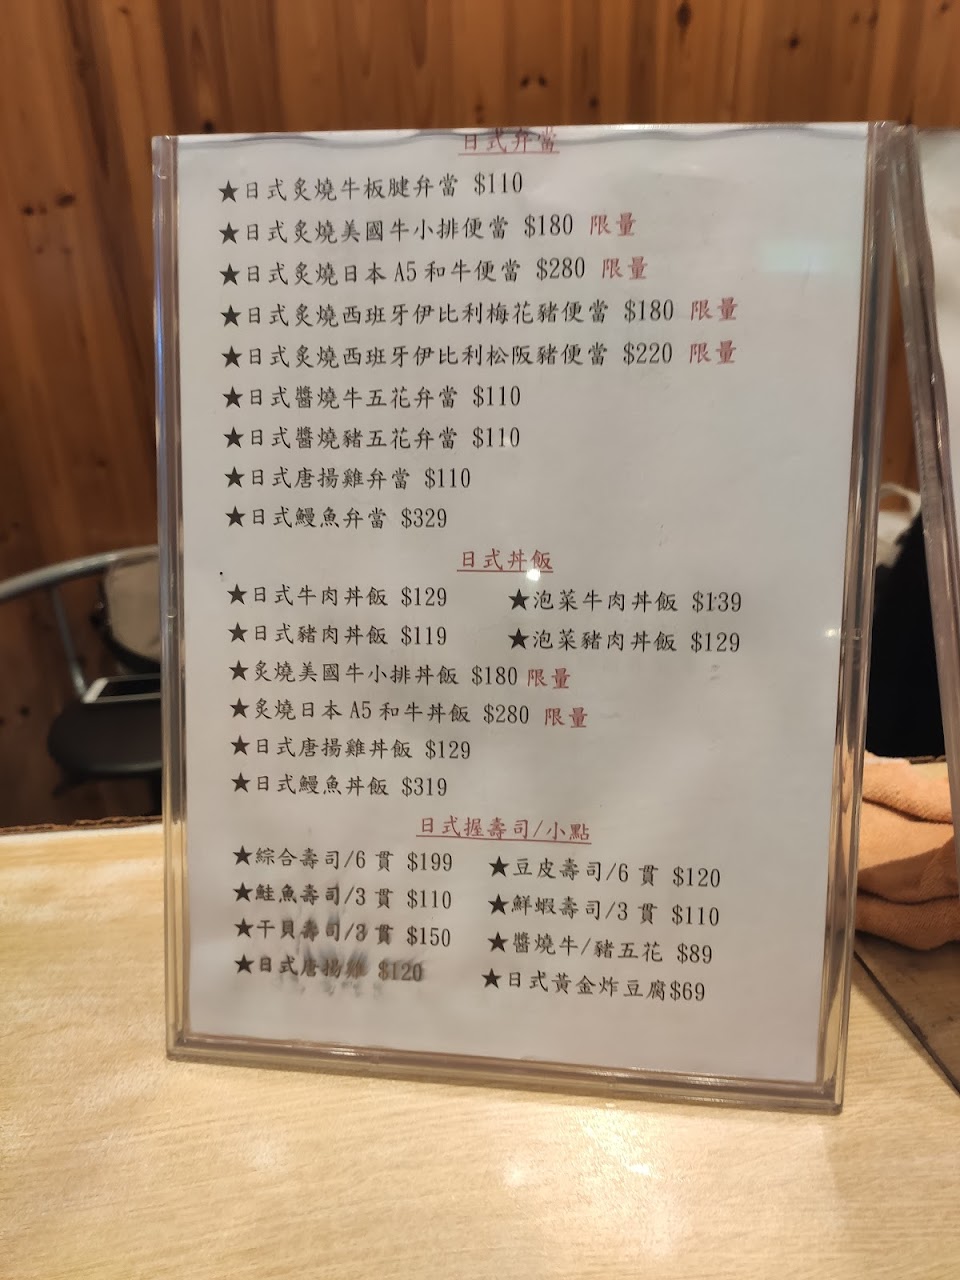 日式弁當
★日式炙燒牛板腱弁當 $110
★日式炙燒美國牛小排便當 $180 限量
★日式炙燒日本A5和牛便當 $280 限量
★日式炙燒西班牙伊比利梅花豬便當 $180 限量
★日式炙燒西班牙伊比利松阪豬便當 $220 限量
★日式醬燒牛五花弁當 $110
★日式醬燒豬五花弁當 $110
★日式唐揚雞弁當 $110
★日式鰻魚弁當 $329
日式丼飯
★日式牛肉丼飯 $129 ★泡菜牛肉丼飯 $139
★日式豬肉丼飯 $119 ★泡菜豬肉丼飯 $129
★炙燒美國牛小排丼飯 $180 限量
★炙燒日本A5和牛丼飯 $280 限量
★日式唐揚雞丼飯 $129
★日式鰻魚丼飯 $319
日式握壽司/小點
★綜合壽司/6貫 $199 ★豆皮壽司/6貫 $120
★鮭魚壽司/3貫 $110 ★鮮蝦壽司/3貫 $110
★干貝壽司/3貫 $150 ★醬燒牛/豬五花 $89
★日式唐揚雞 $120 ★日式黃金炸豆腐$69